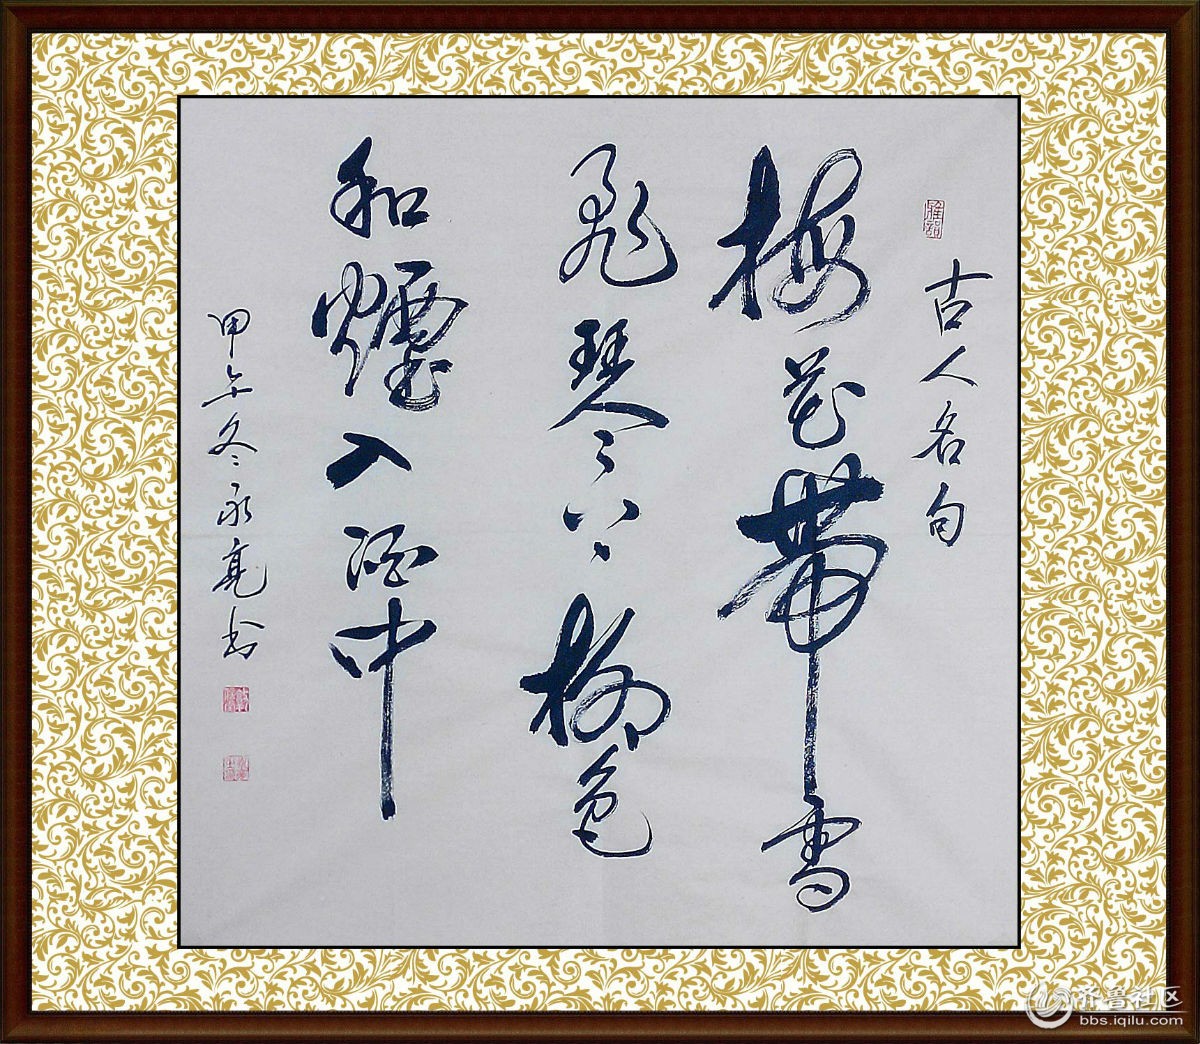 古人名句
梅花帶雪
飛琴上柳色
和煙入酒中
甲午冬永亮书
齐鲁社区
bbs.iqilu.com